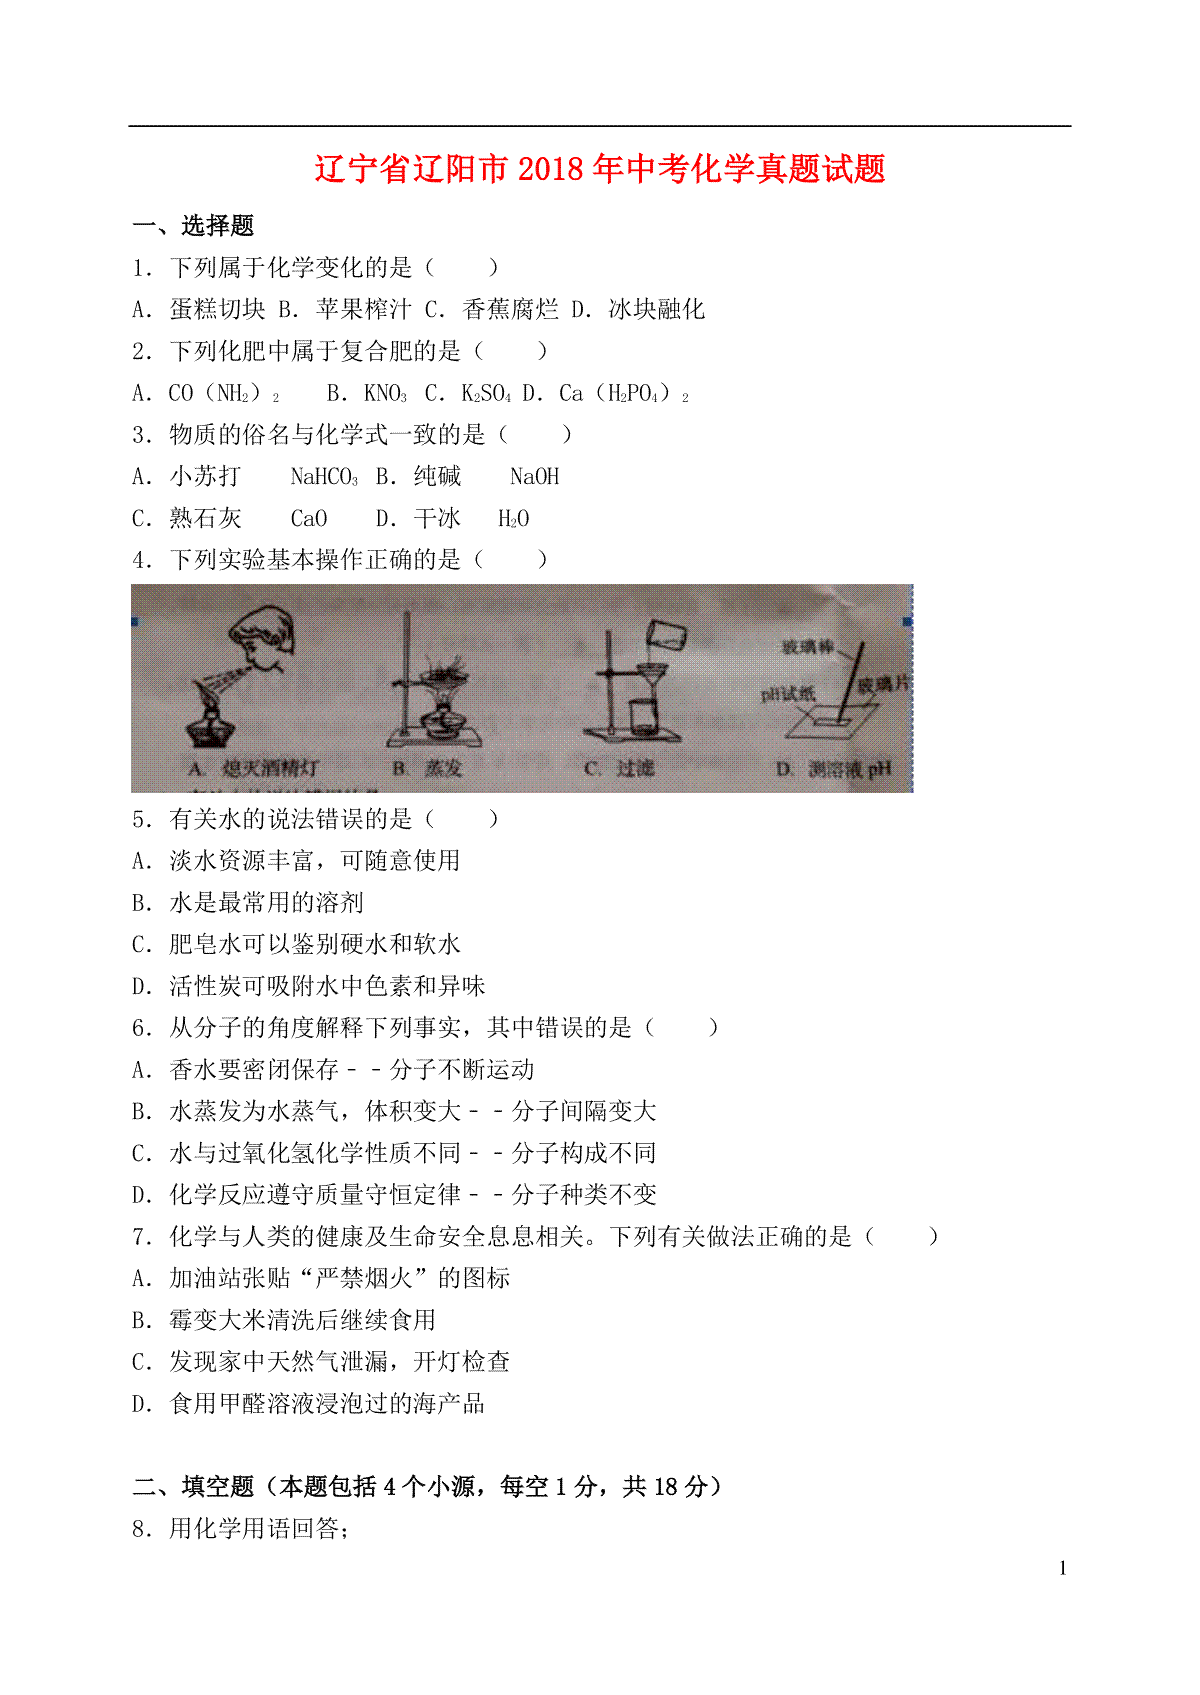 辽宁省辽阳市 2018 年中考化学真题试题
一、选择题
1．下列属于化学变化的是（　　）
A．蛋糕切块 B．苹果榨汁 C．香蕉腐烂 D．冰块融化
2．下列化肥中属于复合肥的是（　　）
A．CO（NH₂）₂　　B．KNO₃ C．K₂SO₄ D．Ca（H₂PO₄）₂
3．物质的俗名与化学式一致的是（　　）
A．小苏打　　NaHCO₃ B．纯碱　　NaOH
C．熟石灰　　CaO　　D．干冰　 H₂O
4．下列实验基本操作正确的是（　　）
玻璃棒
pH试纸
玻璃片
A. 熄灭酒精灯 B. 蒸发 C. 过滤 D. 测溶液 pH
5．有关水的说法错误的是（　　）
A．淡水资源丰富，可随意使用
B．水是最常用的溶剂
C．肥皂水可以鉴别硬水和软水
D．活性炭可吸附水中色素和异味
6．从分子的角度解释下列事实，其中错误的是（　　）
A．香水要密闭保存﹣﹣分子不断运动
B．水蒸发为水蒸气，体积变大﹣﹣分子间隔变大
C．水与过氧化氢化学性质不同﹣﹣分子构成不同
D．化学反应遵守质量守恒定律﹣﹣分子种类不变
7．化学与人类的健康及生命安全息息相关。下列有关做法正确的是（　　）
A．加油站张贴“严禁烟火”的图标
B．霉变大米清洗后继续食用
C．发现家中天然气泄漏，开灯检查
D．食用甲醛溶液浸泡过的海产品
二、填空题（本题包括 4 个小源，每空 1 分，共 18 分）
8．用化学用语回答；
1